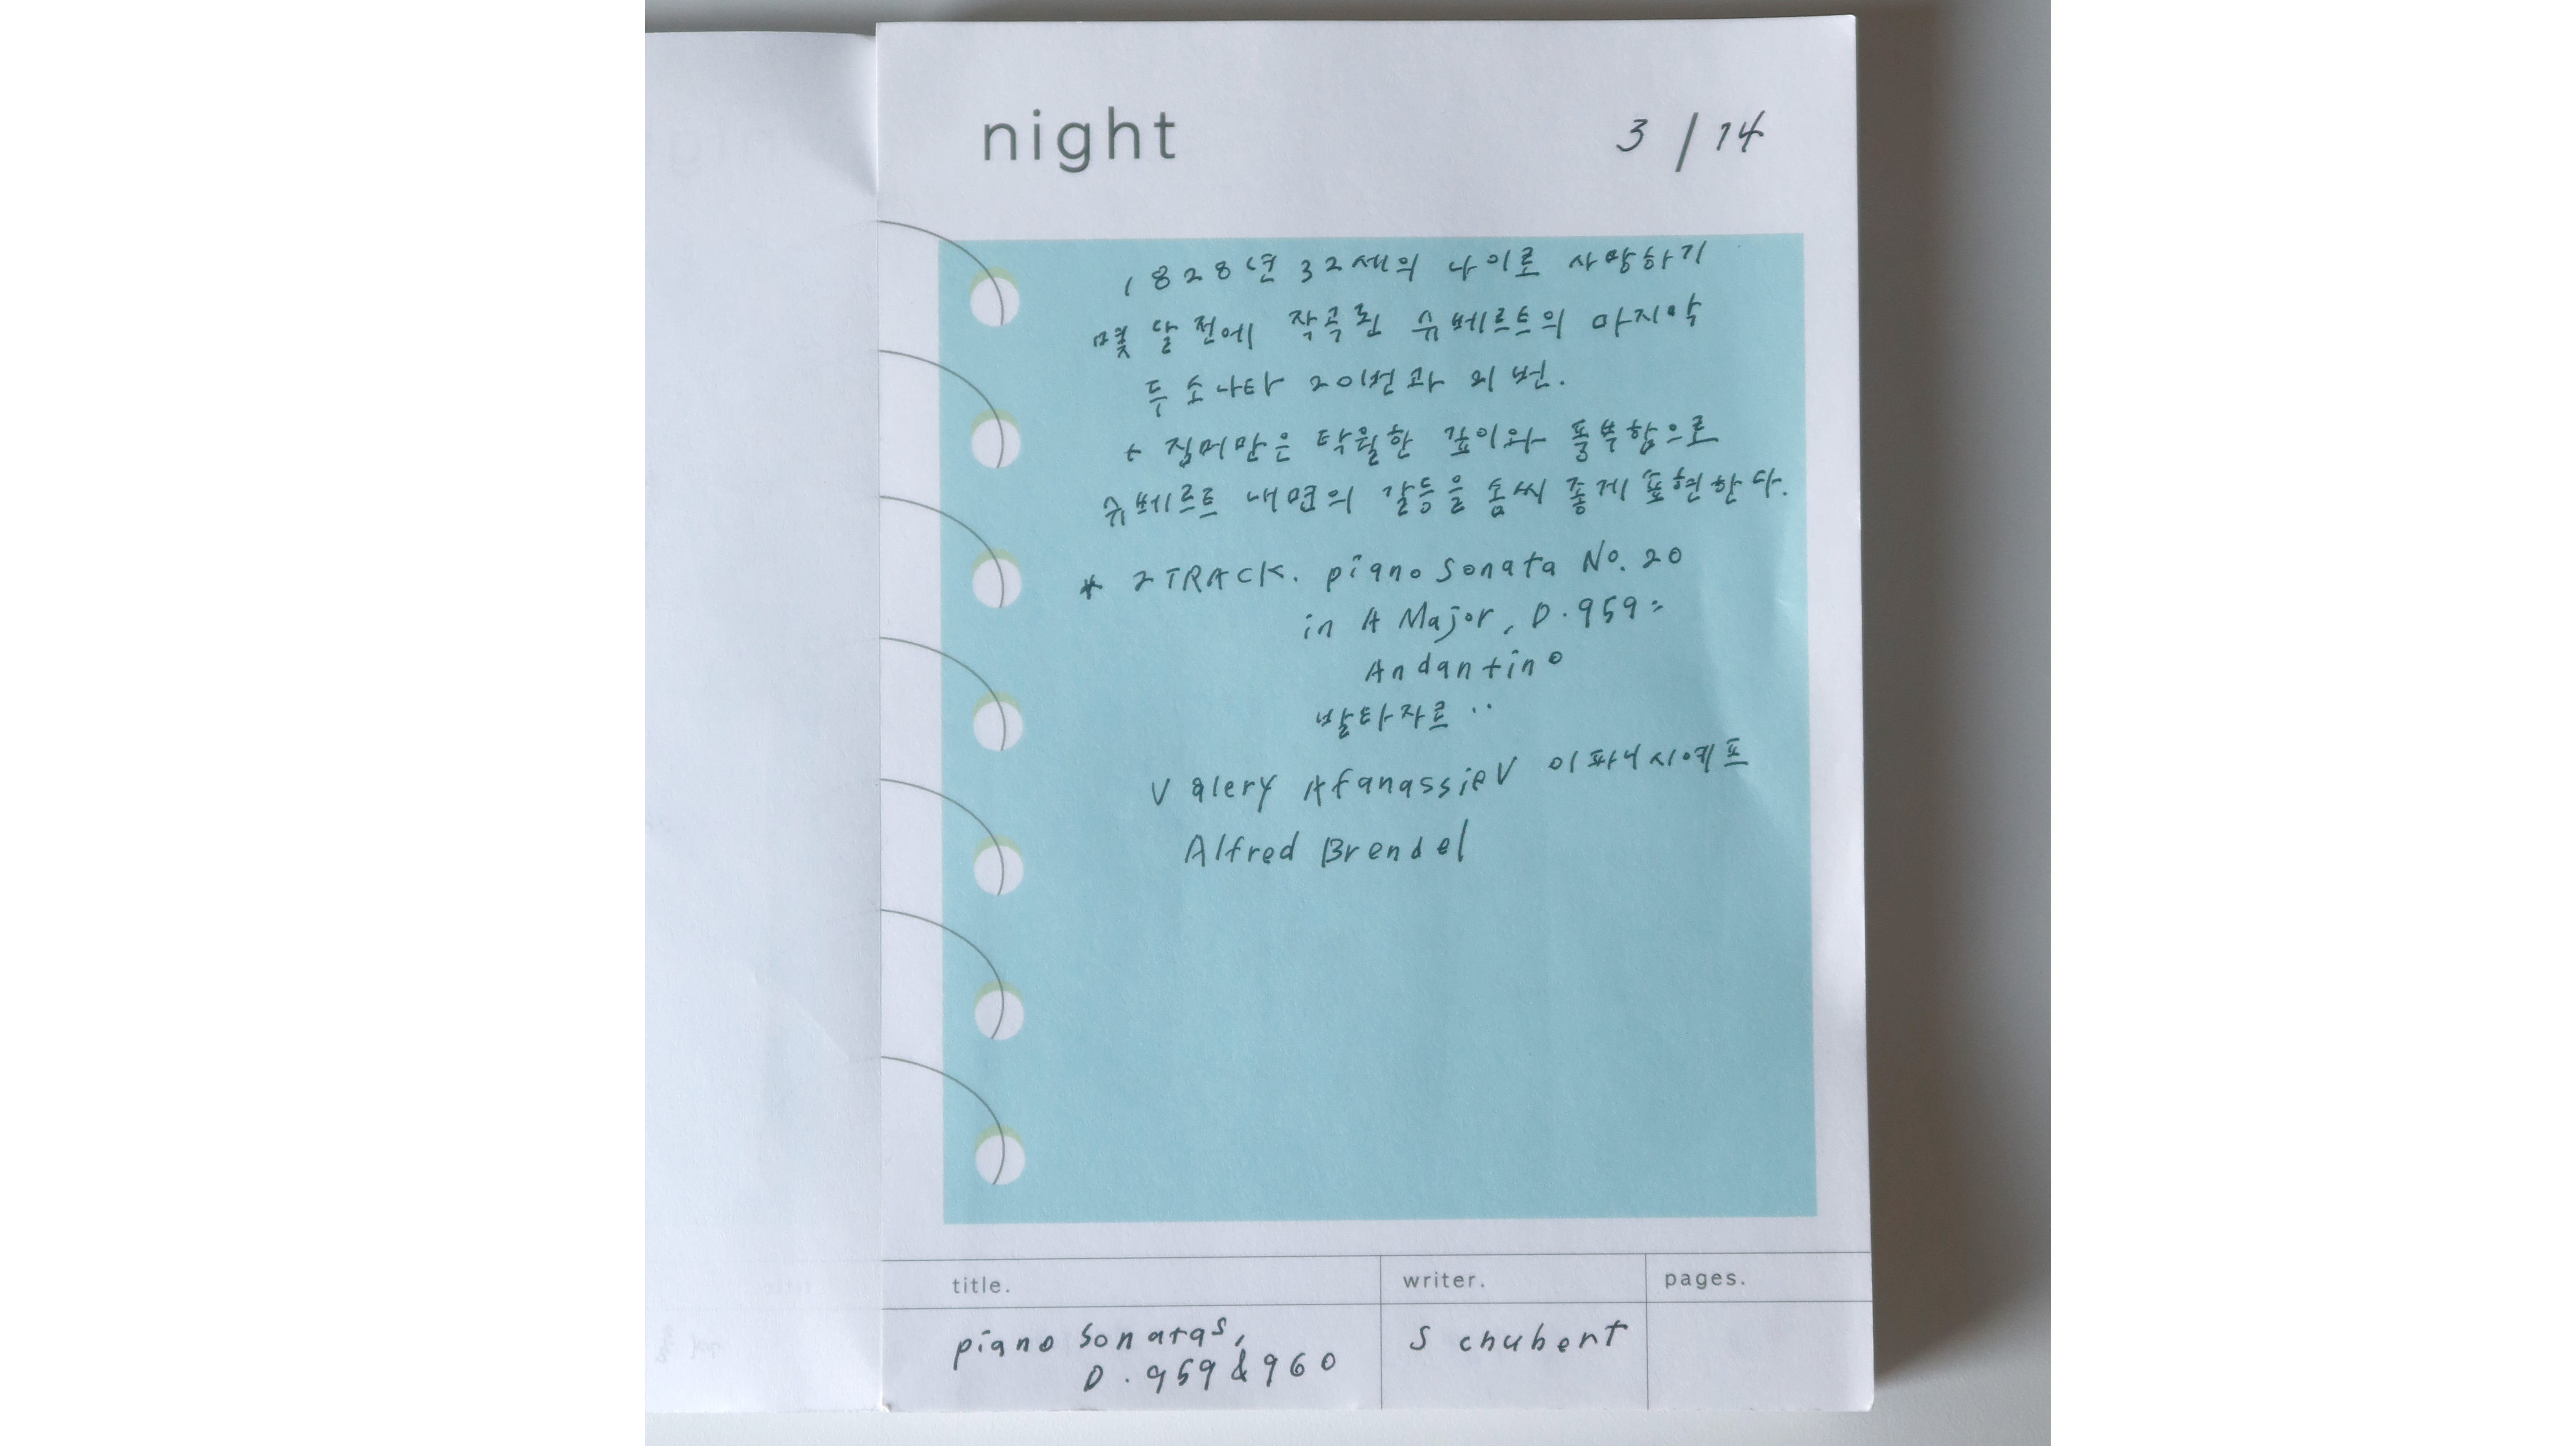 night
3 / 14
1828년 32세의 나이로 사망하기
몇 달 전에 작곡된 슈베르트의 마지막
두 소나타 20번과 21번.
+ 짐머만은 탁월한 깊이와 풍부함으로
슈베르트 내면의 갈등을 솜씨 좋게 표현한다.
* 2 TRACK. piano Sonata No. 20
in A Major, D. 959:
Andantino
발타자르 ..
Valery Afanassiev
Alfred Brendel
title. writer. pages.
piano Sonatas, Schubert
D. 959 & 960